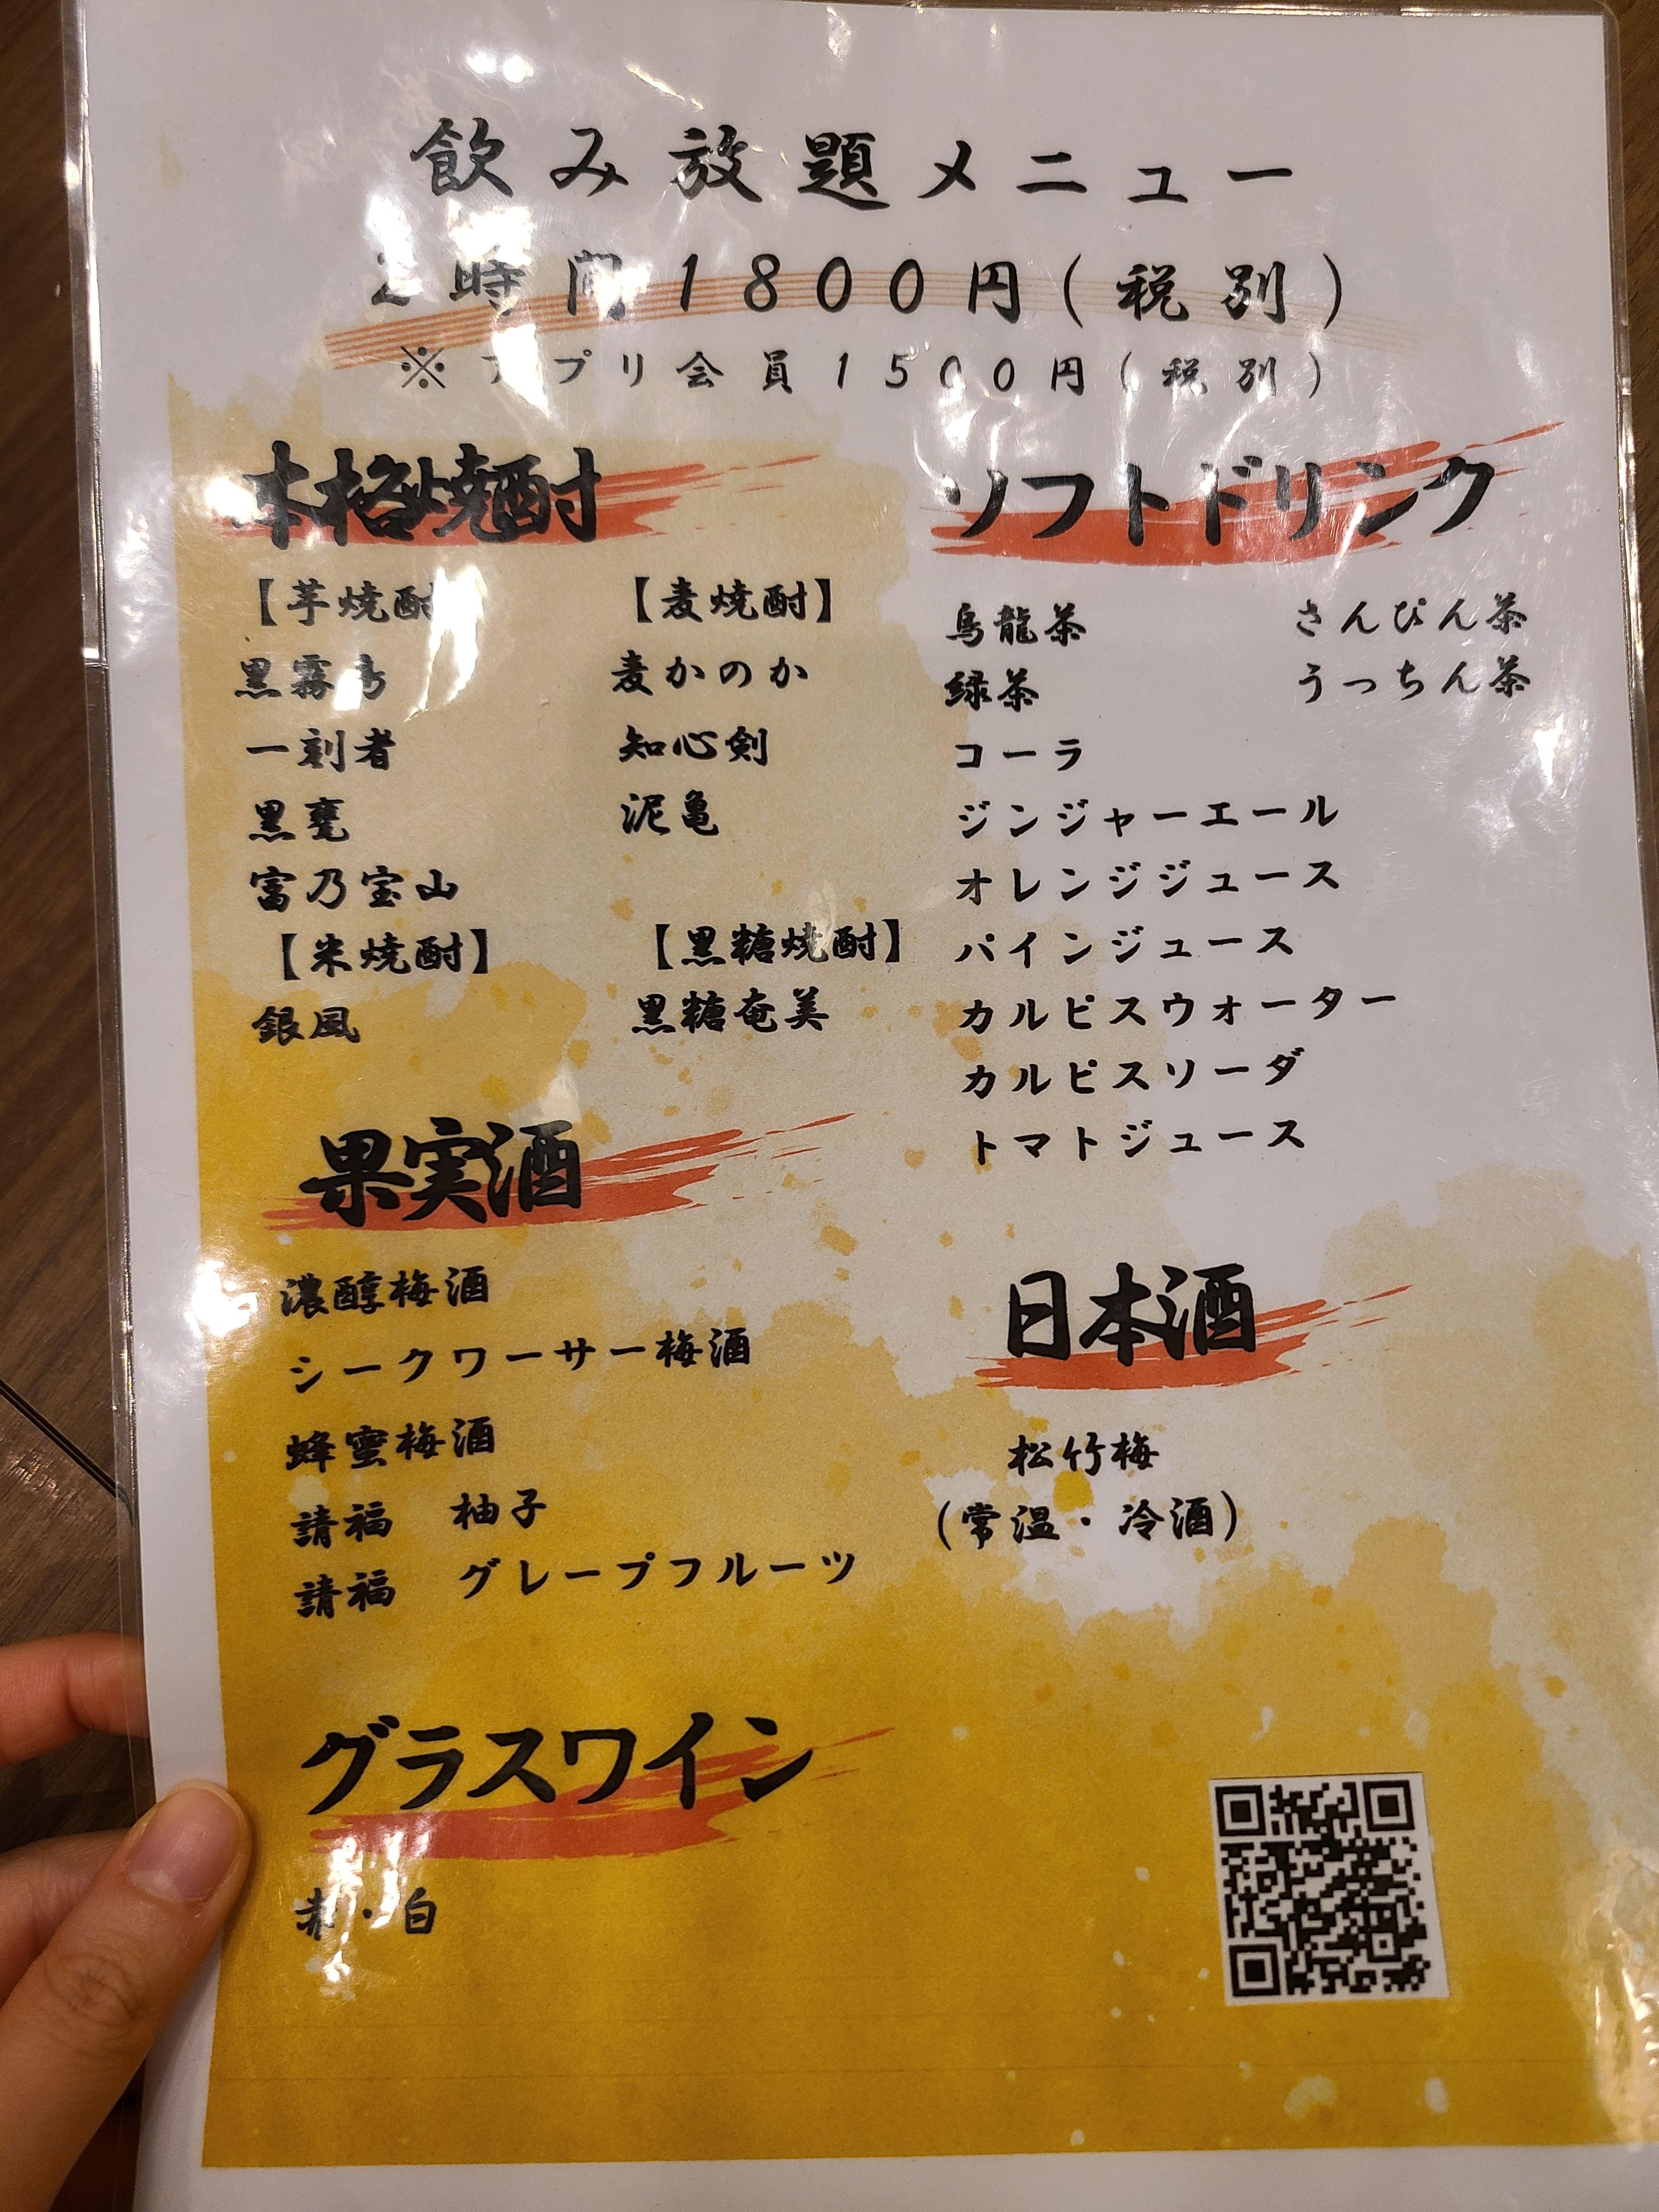 飲み放題メニュー
2時間1800円(税別)
※アプリ会員1500円(税別)
本格焼酎
【芋焼酎】
黒霧島
一刻者
黒甕
富乃宝山
【米焼酎】
銀風
【麦焼酎】
麦かのか
知心剣
泥亀
【黒糖焼酎】
黒糖奄美
果実酒
濃醇梅酒
シークワーサー梅酒
蜂蜜梅酒
請福 柚子
請福 グレープフルーツ
グラスワイン
赤・白
ソフトドリンク
烏龍茶
緑茶
コーラ
ジンジャーエール
オレンジジュース
パインジュース
カルピスウォーター
カルピスソーダ
トマトジュース
さんぴん茶
うっちん茶
日本酒
松竹梅
(常温・冷酒)